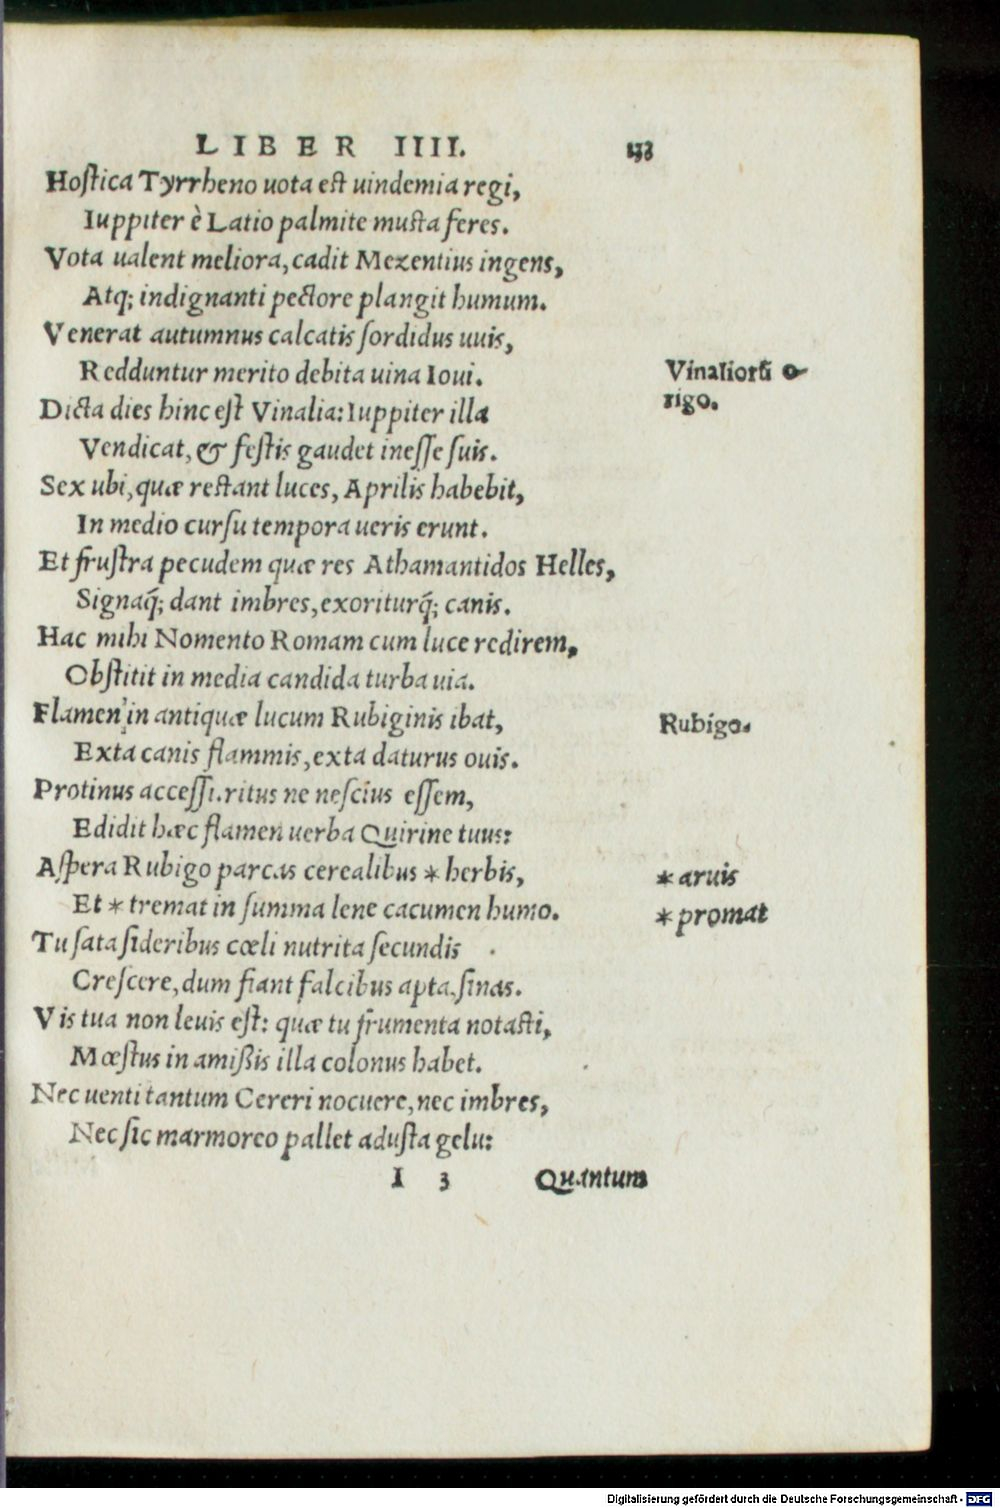 LIBER IIII. 133
Hostica Tyrrheno uota est uindemia regi,
Iuppiter è Latio palmite musta feres.
Vota ualent meliora, cadit Mezentius ingens,
Atq; indignanti pectore plangit humum.
Venerat autumnus calcatis sordidus uuis,
Redduntur merito debita uina Ioui.
Vinaliorũ o-
rigo.
Dicta dies hinc est Vinalia: Iuppiter illa
Vendicat, & festis gaudet inesse suis.
Sex ubi, quæ restant luces, Aprilis habebit,
In medio cursu tempora ueris erunt.
Et frustra pecudem quæ res Athamantidos Helles,
Signaq́; dant imbres, exoriturq́; canis.
Hac mihi Nomento Romam cum luce redirem,
Obstitit in media candida turba uia.
Flamen in antiquæ lucum Rubiginis ibat,
Rubigo.
Exta canis flammis, exta daturus ouis.
Protinus accessi. ritus ne nescius essem,
Edidit hæc flamen uerba Quirine tuus:
Aspera Rubigo parcas cerealibus * herbis,
* aruis
Et * tremat in summa lene cacumen humo.
* promat
Tu sata sideribus cœli nutrita secundis
Crescere, dum fiant falcibus apta, sinas.
Vis tua non leuis est: quæ tu frumenta notasti,
Mœstus in amißis illa colonus habet.
Nec uenti tantum Cereri nocuere, nec imbres,
Nec sic marmoreo pallet adusta gelu:
I 3 Quantum
Digitalisierung gefördert durch die Deutsche Forschungsgemeinschaft - DFG